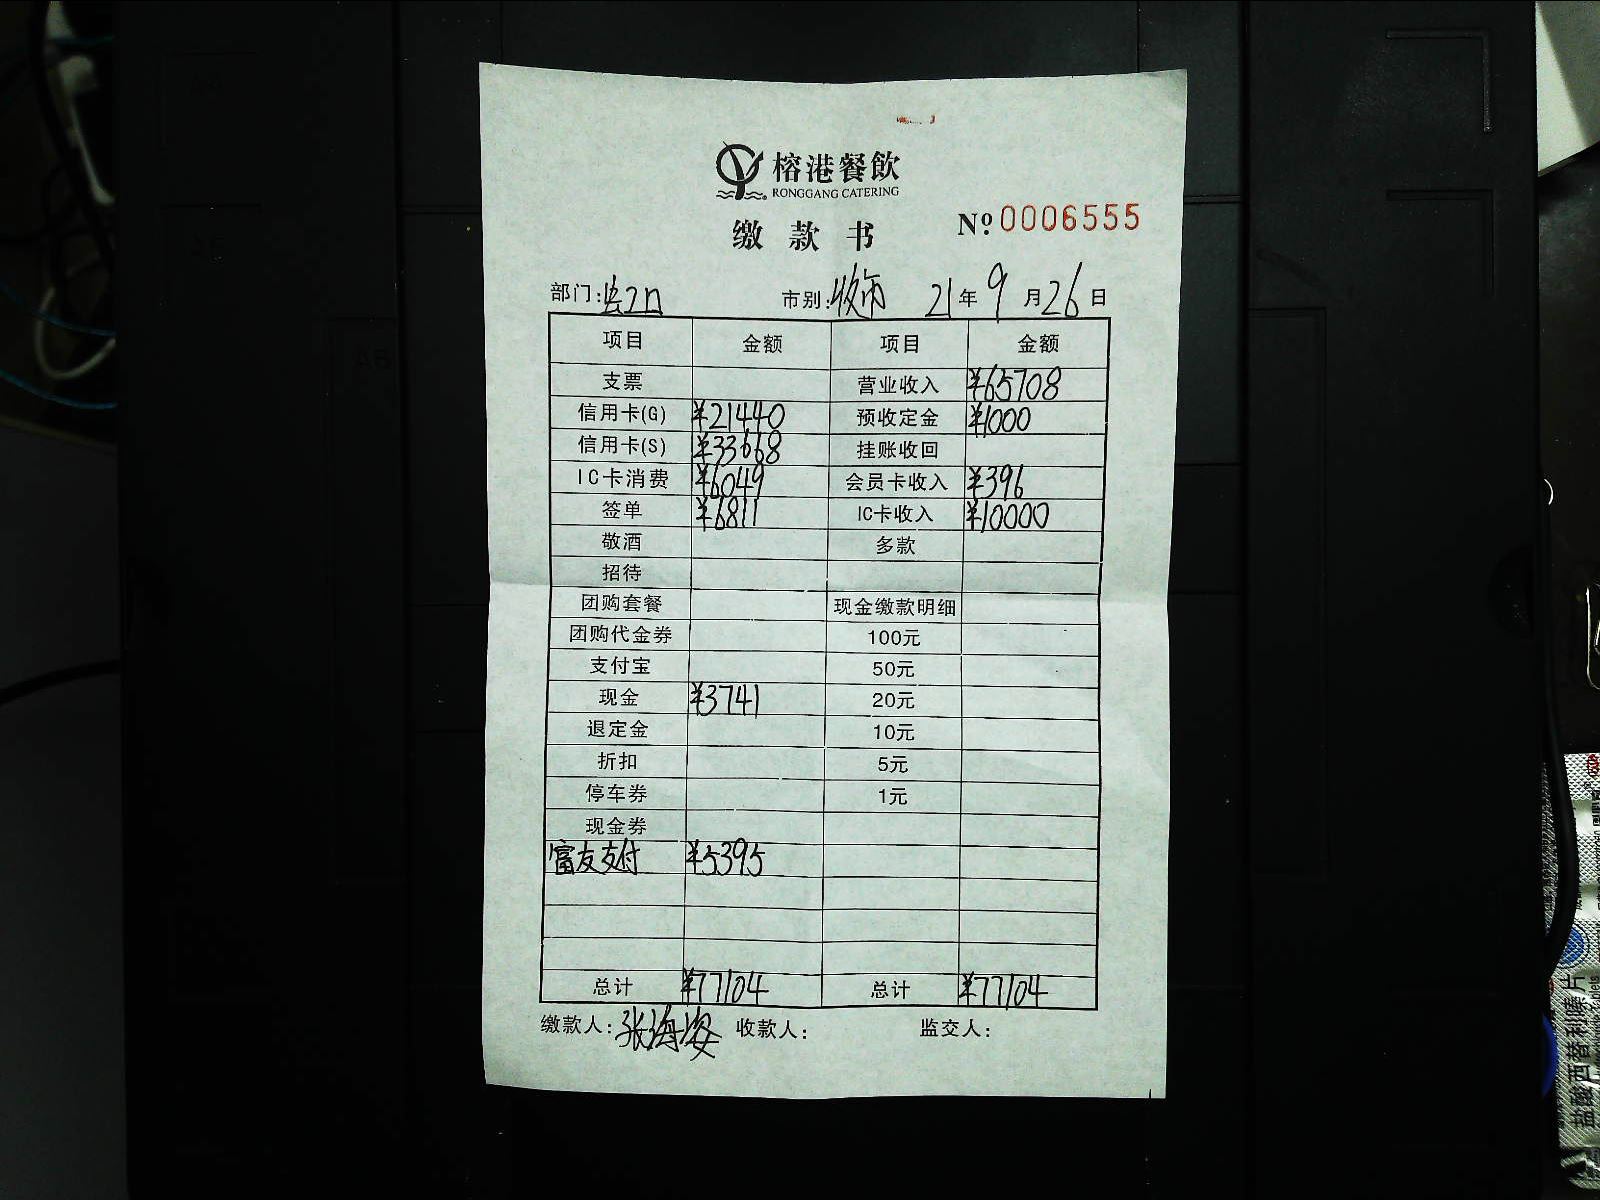 榕港餐飲
RONGGANG CATERING
缴款书 Nº 0006555
部门: 市别:收市 21年9月26日
项目 金额 项目 金额
支票 营业收入 ¥65708
信用卡(G) ¥21440 预收定金 ¥1000
信用卡(S) ¥33668 挂账收回
IC卡消费 ¥6049 会员卡收入 ¥396
签单 ¥6811 IC卡收入 ¥10000
敬酒 多款
招待
团购套餐 现金缴款明细
团购代金券 100元
支付宝 50元
现金 ¥3741 20元
退定金 10元
折扣 5元
停车券 1元
现金券
富友支付 ¥5395
总计 ¥77104 总计 ¥77104
缴款人:张海姿 收款人: 监交人:
盐酸西替利嗪片